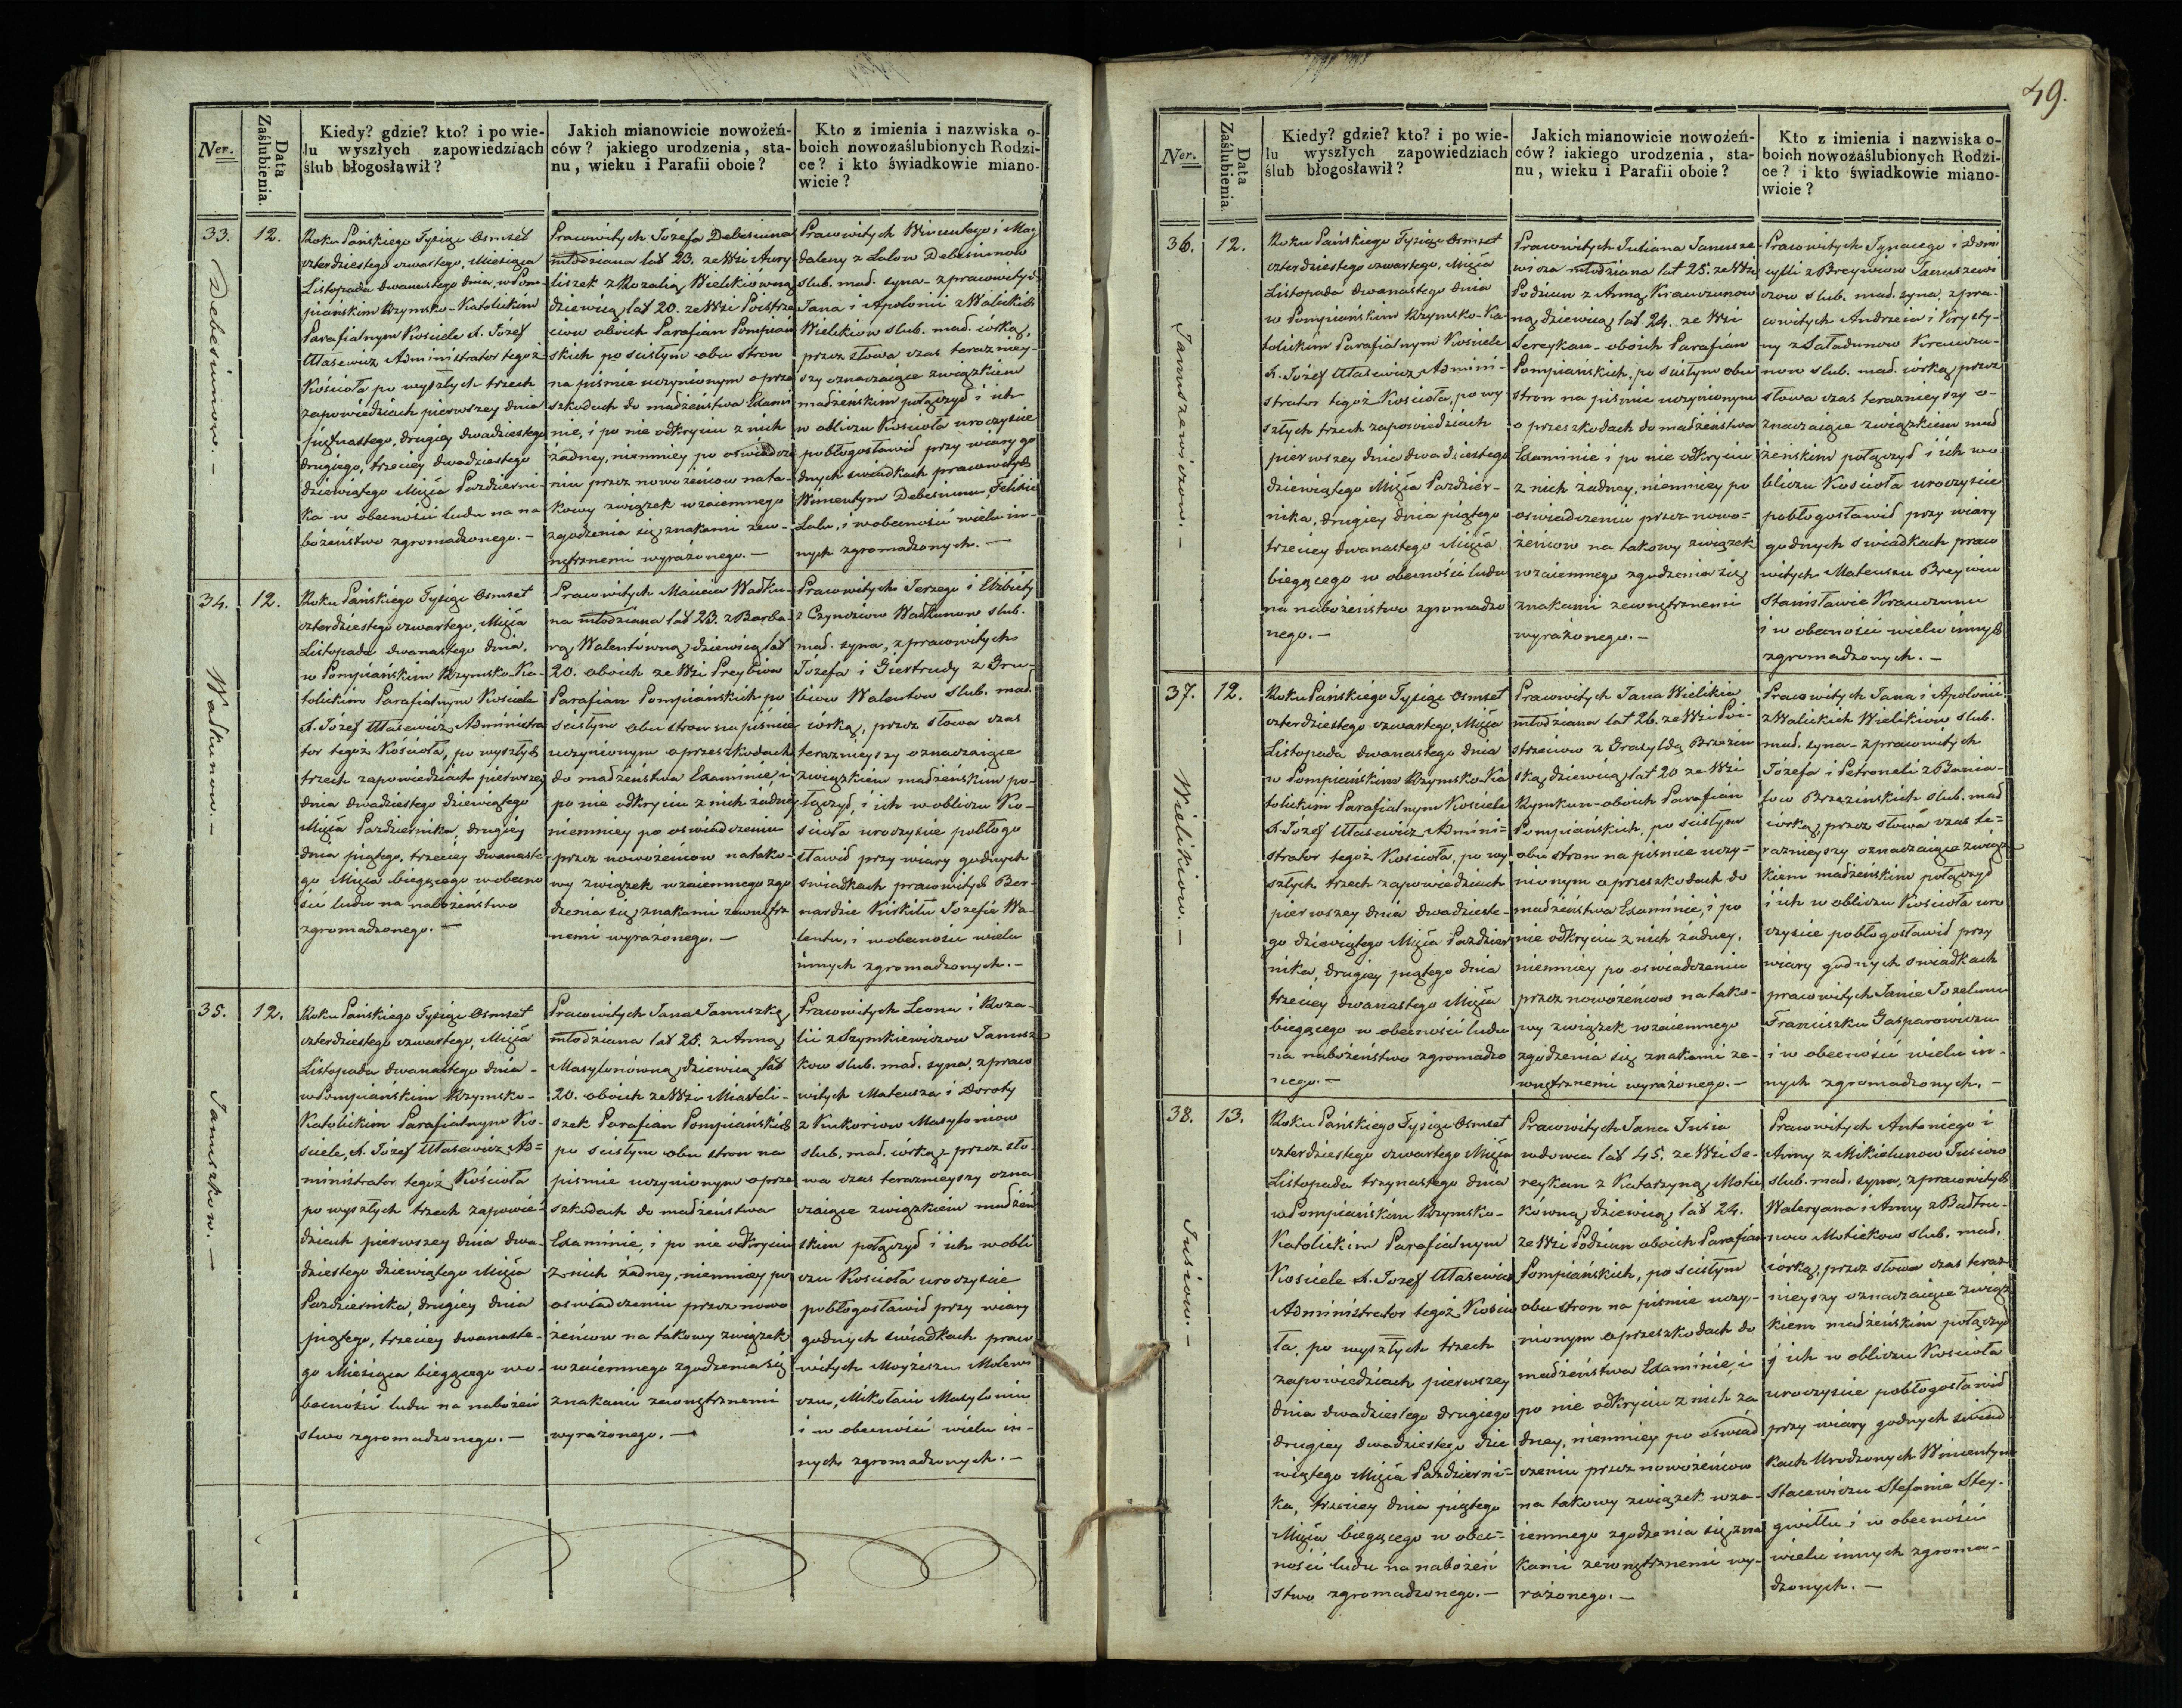 49.
Ner.
Data Zaślubienia.
Kiedy? gdzie? kto? i po wie-
lu wyszłych zapowiedziach
ślub błogosławił?
Jakich mianowicie nowożeń-
ców? jakiego urodzenia, sta-
nu, wieku i Parafii oboie?
Kto z imienia i nazwiska o-
boich nowozaślubionych Rodzi-
ce? i kto świadkowie miano-
wicie?
33.
Debesiunow. –
12.
Roku Pańskiego Tysiąc Osmset
czterdziestego czwartego, Miesiąca
Listopada dwunastego dnia, w Pom-
piańskim Rzymsko-Katolickim
Parafialnym Kościele X. Józef
Administrator tegoż
Kościoła po wyszłych trzech
zapowiedziach pierwszey dnia
piętnastego, drugiey dwadziestego
drugiego, trzeciey dwadziestego
dziewiątego Mięsią Pazdzierni-
ka w obecności ludu na na
bożeństwo zgromadzonego. –
Pracowitych Józefa Debesiuna
młodziana lat 23. ze Wsi Aury
liszek z Rozalią Wielikiówną
dziewicą lat 20. ze Wsi Poistrze
ciow oboich Parafian Pompiań
skich po scisłym obu stron
na piśmie uczynionym o prze
szkodach do małżeństwa Exami
nie, i po nie odkryciu z nich
żadney, niemniey po oświadcze
niu przez nowożeńcow na ta-
kowy związek wzaiemnego
zgodzenia się znakami zew-
nętrznemi wyrażonego. –
Pracowitych Wincentego i Mag
daleny z Lalow Debesiunow
slub. mał. syna – z pracowitych
Jana i Apolonii z Walickich
Wielikiow slub. mał. córką,
przez słowa czas terazniey-
szy oznaczaiące związkiem
małżeńskim połączył i ich
w obliczu Kościoła uroczyście
pobłogosławił przy wiary go
dnych świadkach pracowitych
Wincentym Debesiunu, Felixie
Lalu, i w obecności wielu in-
nych zgromadzonych. –
34.
Watkunow. –
12.
Roku Pańskiego Tysiąc Osmset
czterdziestego czwartego, Mięsią
Listopada dwunastego dnia,
w Pompiańskim Rzymsko-Ka-
tolickim Parafialnym Kościele
X. Józef Administra
tor tegoż Kościoła, po wyszłych
trzech zapowiedziach pierwszey
dnia dwadziestego dziewiątego
Mięsią Pazdziernika, drugiey
dnia piątego, trzeciey dwunaste-
go Mięsią bieżącego w obecno
ści ludu na nabożeństwo
zgromadzonego. –
Pracowitych Macieia Watku-
na młodziana lat 23. z Barba-
rą Walentówną dziewicą lat
20. oboich ze Wsi Preybiow
Parafian Pompiańskich po
scisłym obu stron na piśmie
uczynionym o przeszkodach
do małżeństwa Examinie i
po nie odkryciu z nich żadney
niemniey po oświadczeniu
przez nowożeńcow na tako-
wy związek wzaiemnego zgo
dzenia się znakami zewnętrz
nemi wyrażonego. –
Pracowitych Jerzego i Elżbiety
z Czyndziow Watkunow slub.
mał. syna, z pracowitych
Józefa i Giertrudy z Gru-
biow Walentow slub. mał.
córką, przez słowa czas
teraznieyszy oznaczaiące
związkiem małżeńskim po-
łączył, i ich w obliczu Ko-
ścioła uroczyście pobłogo
sławił przy wiary godnych
świadkach pracowitych Ber-
nardzie Kirkiłu Józefie Wa-
lentu, i w obecności wielu
innych zgromadzonych. –
35.
Januszkow. –
12.
Roku Pańskiego Tysiąc Osmset
czterdziestego czwartego, Mięsią
Listopada dwunastego dnia –
w Pompiańskim Rzymsko-
Katolickim Parafialnym Ko-
ściele, X. Józef Ad=
ministrator tegoż Kościoła
po wyszłych trzech zapowie-
dziach pierwszey dnia dwa-
dziestego dziewiątego Mięsią
Pazdziernika, drugiey dnia
piątego, trzeciey dwunaste-
go Miesiąca bieżącego w o-
becności ludu na nabożeń
stwo zgromadzonego. –
Pracowitych Jana Januszkę
młodziana lat 25. z Anną
Masylonówną dziewicą lat
20. oboich ze Wsi Miasteli-
szek Parafian Pompiańskich
po scisłym obu stron na
piśmie uczynionym o prze
szkodach do małżeństwa
Examinie, i po nie odkryciu
z nich żadney, niemniey po
oświadczeniu przez nowo
żeńcow na takowy związek
wzaiemnego zgodzenia się
znakami zewnętrznemi
wyrażonego. –
Pracowitych Leona i Roza-
lii z Szymkiewiczow Janusz
kow slub. mał. syna, z praco
witych Mateusza i Doroty
z Kukoriow Masylonow
slub. mał. córką – przez sło-
wa czas teraznieyszy ozna
czaiące związkiem małżeń
skim połączył i ich w obli
czu Kościoła uroczyście
pobłogosławił przy wiary
godnych świadkach praco
witych Moyżeszu Molew
czu, Mikołaiu Masyloniu
i w obecności wielu in-
nych zgromadzonych. –
Ner.
Data Zaślubienia.
Kiedy? gdzie? kto? i po wie-
lu wyszłych zapowiedziach
ślub błogosławił?
Jakich mianowicie nowożeń-
ców? iakiego urodzenia, sta-
nu, wieku i Parafii oboie?
Kto z imienia i nazwiska o-
boich nowozaślubionych Rodzi-
ce? i kto świadkowie miano-
wicie?
36.
Januszewiczow. –
12.
Roku Pańskiego Tysiąc Osmset
czterdziestego czwartego, Mięsią
Listopada dwunastego dnia
w Pompiańskim Rzymsko-Ka-
tolickim Parafialnym Kościele
X. Józef Admini-
strator tegoż Kościoła, po wy-
szłych trzech zapowiedziach
pierwszey dnia dwadziestego
dziewiątego Mięsią Pazdzier-
nika, drugiey dnia piątego
trzeciey dwunastego Mięsią
bieżącego w obecności ludu
na nabożeństwo zgromadzo
nego. –
Pracowitych Juliana Janusze-
wicza młodziana lat 25. ze Wsi
Podziun z Anną Krauczunow
ną dziewicą lat 24. ze Wsi
Sereykan – oboich Parafian
Pompiańskich, po scisłym obu
stron na piśmie uczynionym
o przeszkodach do małżeństwa
Examinie i po nie odkryciu
z nich żadney, niemniey po
oświadczeniu przez nowo=
żeńcow na takowy związek
wzaiemnego zgodzenia się
znakami zewnętrznemi
wyrażonego. –
Pracowitych Ignacego i Domi
cylli z Breywiow Januszewi
czow slub. mał. syna, z pra-
cowitych Andrzeia i Krysty-
ny z Saładunow Krauczu-
now slub. mał. córką, przez
słowa czas teraznieyszy o-
znaczaiące związkiem mał
żeńskim połączył i ich w o-
bliczu Kościoła uroczyście
pobłogosławił przy wiary
godnych świadkach praco
witych Mateuszu Breywiu
Stanisławie Krauczunu
i w obecności wielu innych
zgromadzonych. –
37.
Wielikiow. –
12.
Roku Pańskiego Tysiąc Osmset
czterdziestego czwartego, Mięsią
Listopada dwunastego dnia
w Pompiańskim Rzymsko-Ka
tolickim Parafialnym Kościele
X. Józef Admini=
strator tegoż Kościoła, po wy
szłych trzech zapowiedziach
pierwszey dnia dwadzieste-
go dziewiątego Mięsią Pazdzier
nika, drugiey piątego dnia
trzeciey dwunastego Mięsią
bieżącego w obecności ludu
na nabożeństwo zgromadzo
nego. –
Pracowitych Jana Wielikia
młodziana lat 26. ze Wsi Poi-
strzeciow z Grasyldą Brzezin
ską dziewicą lat 20 ze Wsi
Rymkun – oboich Parafian
Pompiańskich, po scisłym
obu stron na piśmie uczy=
nionym o przeszkodach do
małżeństwa Examinie, i po
nie odkryciu z nich żadney,
niemniey po oświadczeniu
przez nowożeńcow na tako-
wy związek wzaiemnego
zgodzenia się znakami ze-
wnętrznemi wyrażonego. –
Pracowitych Jana i Apolonii
z Walickich Wielikiow slub.
mał. syna – z pracowitych
Józefa i Petroneli z Bania-
low Brzezińskich slub. mał
córką, przez słowa czas te=
raznieyszy oznaczaiące związ
kiem małżeńskim połączył
i ich w obliczu Kościoła uro
czyście pobłogosławił przy
wiary godnych świadkach
pracowitych Janie Jozelunu
Franciszku Gasparowiczu
i w obecności wielu in-
nych zgromadzonych. –
38.
Jusiow. –
13.
Roku Pańskiego Tysiąc Osmset
czterdziestego czwartego Mięsią
Listopada trzynastego dnia
w Pompiańskim Rzymsko-
Katolickim Parafialnym
Kościele X. Jozef
Administrator tegoż Kościo
ła, po wyszłych trzech
zapowiedziach pierwszey
dnia dwadziestego drugiego
drugiey dwadziestego dzie
wiątego Mięsią Pazdzierni=
ka, trzeciey dnia piątego
Mięsią bieżącego w obec=
ności ludu na nabożeń
stwo zgromadzonego. –
Pracowitych Jana Jusia
wdowca lat 45. ze Wsi Se-
reykan z Katarzyną Motie
kówną dziewicą lat 24.
ze Wsi Podziun oboich Parafian
Pompiańskich, po scisłym
obu stron na piśmie uczy-
nionym o przeszkodach do
małżeństwa Examinie, i
po nie odkryciu z nich ża
dney, niemniey po oświad
czeniu przez nowożeńcow
na takowy związek wza-
iemnego zgodzenia się zna
kami zewnętrznemi wy-
rażonego. –
Pracowitych Antoniego i
Anny z Mikielunow Jusiow
slub. mał. syna, z pracowitych
Waleryana i Anny z Bałtru-
now Motiekow slub. mał.
córką, przez słowa czas teraz
nieyszy oznaczaiące związ
kiem małżeńskim połączył
i ich w obliczu Kościoła
uroczyście pobłogosławił
przy wiary godnych świad
kach Urodzonych Wincentym
Stacewiczu Stefanie Stey-
gwiłłu i w obecności
wielu innych zgroma-
dzonych. –